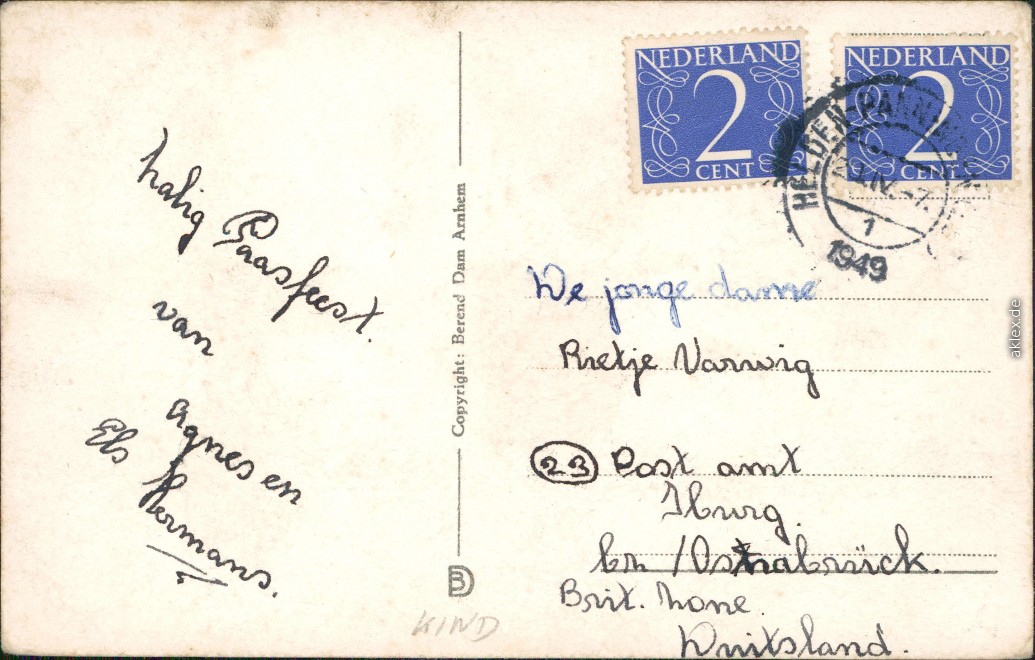 halig Paasfeest.
van
Agnes en
Els Hermans.
Copyright: Berend Dam Arnhem
BD
KIND
NEDERLAND
2
CENT
NEDERLAND
2
CENT
HELDEN-PANN
1
1949
De jonge dame
Rietje Varwig
23 Post amt
Iburg.
br /Osnabrück.
Brit. Zone.
Duitsland.
aklex.de